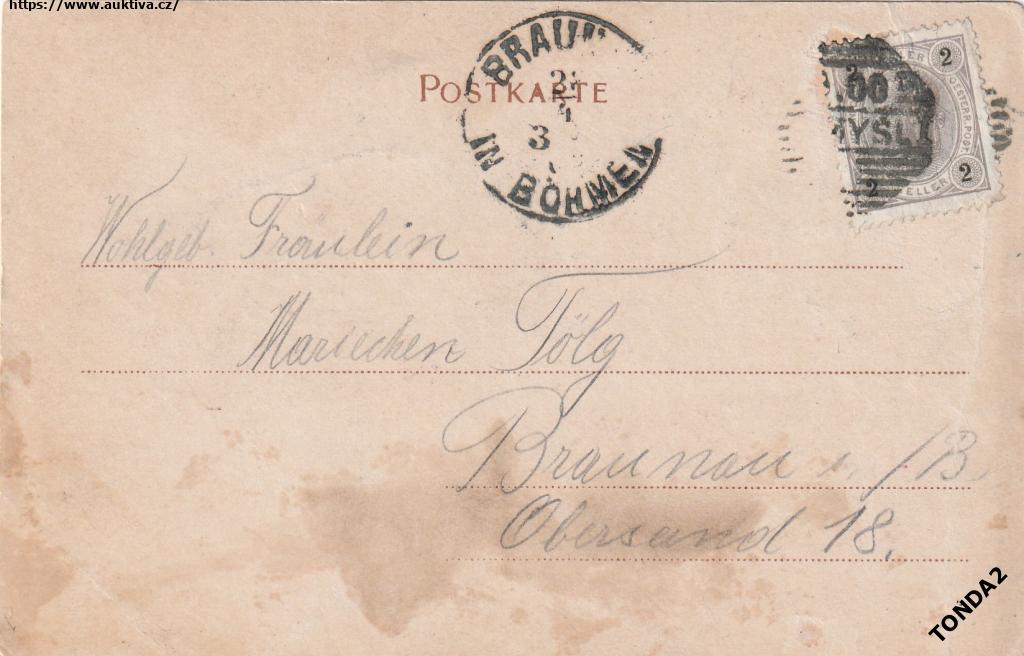 https://www.auktiva.cz/
POSTKARTE
BRAUN
IN BÖHMEN
3
2 2
OESTERR. POST.
2 2
Wohlgeb. Fräulein
Mariechen Tölg
Braunau i. /B.
Obersand 18.
TONDA2